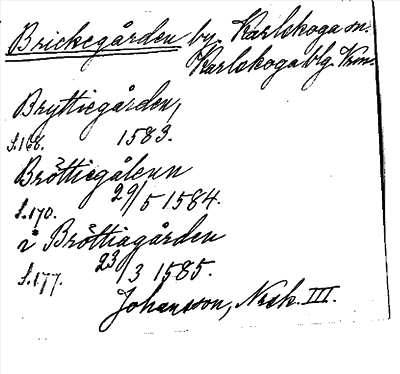 Brickegården by, Karlskoga sn.
Karlskogablg Krm.
Bryttiegården,
S.168. 1583.
Bröttiegålenn
S.170. 29/5 1584.
i Bröttiagården
S.177. 23/3 1585.
Johansson, Nosk. III.